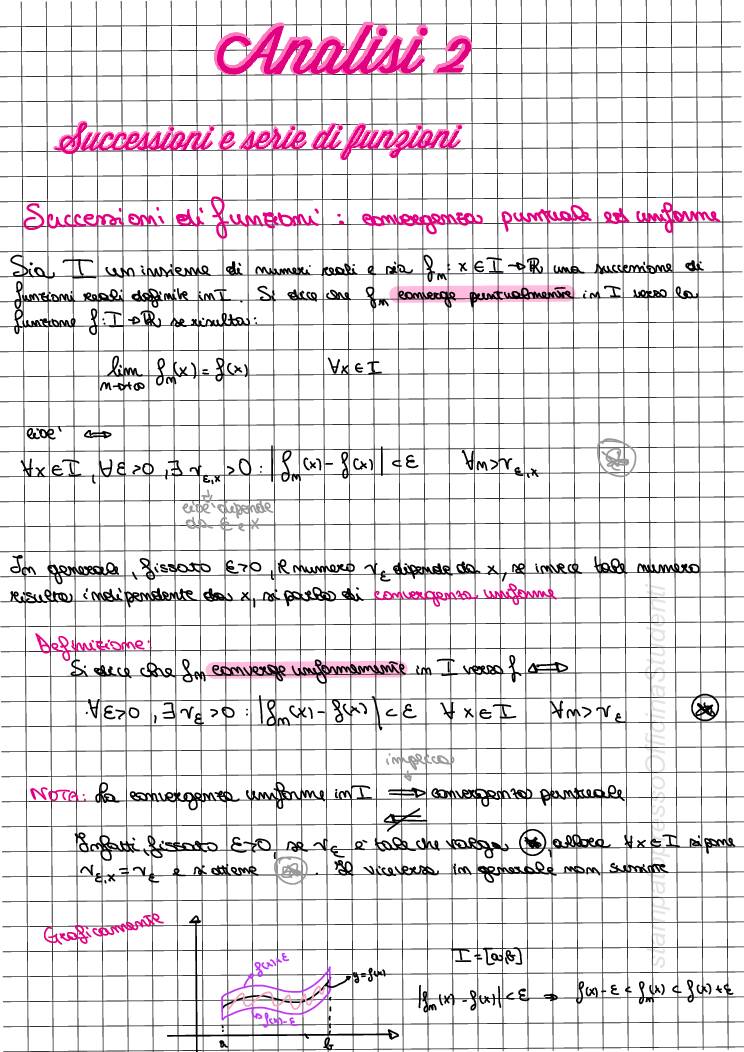 Analisi 2
Successioni e serie di funzioni
Successioni di funzioni : convergenza puntuale ed uniforme
Sia I un insieme di numeri reali e sia fₙ : x ∈ I → ℝ una successione di
funzioni reali definite in I. Si dice che fₙ converge puntualmente in I verso la
funzione f: I → ℝ se risulta:
lim fₙ(x) = f(x) ∀x ∈ I
n→+∞
cioè ⟺
∀x ∈ I, ∀ε>0, ∃ ν_ε,x > 0 : |fₙ(x) - f(x)| < ε ∀n > ν_ε,x
cioè dipende
da ε e x
In generale, fissato ε>0, il numero ν_ε dipende da x, se invece tale numero
risulta indipendente da x, si parla di convergenza uniforme
Definizione:
Si dice che fₙ converge uniformemente in I verso f ⟺
∀ε>0, ∃ν_ε>0 : |fₙ(x) - f(x)| < ε ∀x ∈ I ∀n > ν_ε
implica
NOTA: La convergenza uniforme in I ⟹ convergenza puntuale
Infatti, fissato ε>0, se ν_ε è tale che valga ✱, allora ∀x ∈ I si pone
ν_ε,x = ν_ε e si ottiene ✱. Il viceversa in generale non sussiste
Graficamente
f(x)+ε
y=f(x)
f(x)-ε
a b
I = [a,b]
|fₙ(x) - f(x)| < ε ⇒ f(x) - ε < fₙ(x) < f(x) + ε
stampato presso Officina Studenti